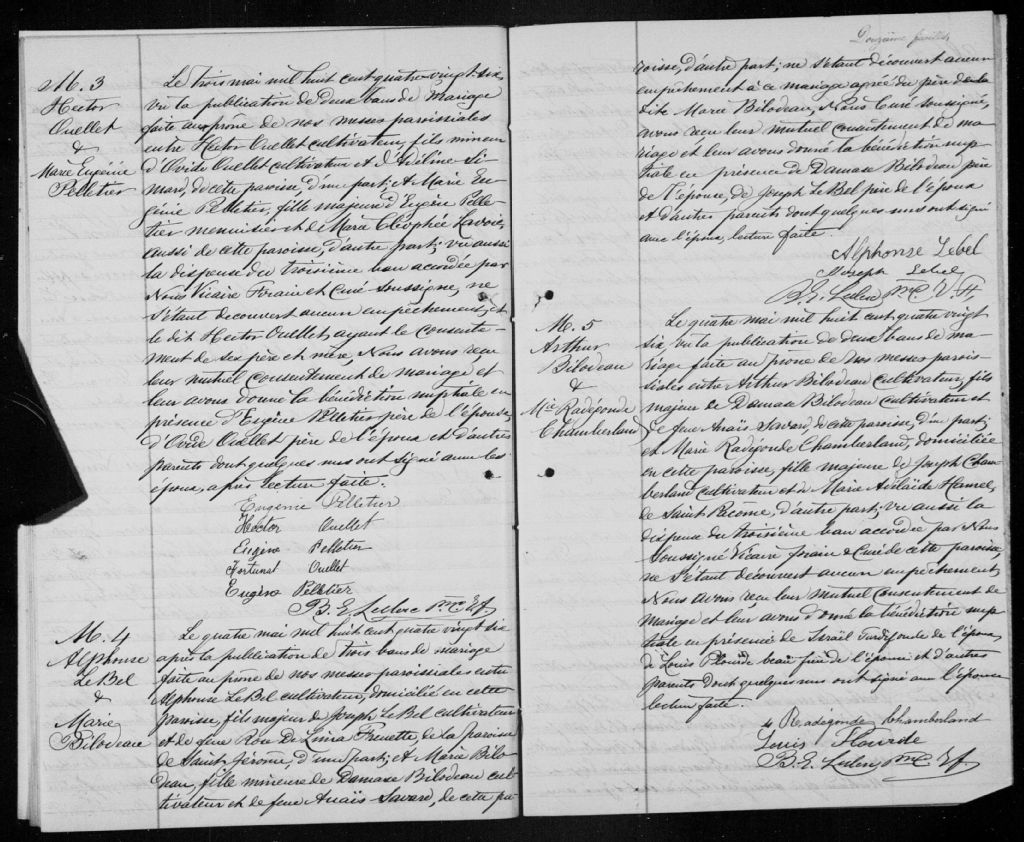 M. 3
Hector
Ouellet
&
Marie Eugénie
Pelletier
Le trois mai mil huit cent quatre-vingt-six,
vu la publication de deux bans de mariage
faite au prône de nos messes paroissiales
entre Hector Ouellet cultivateur, fils mineur
d'Ovide Ouellet cultivateur et d'Adeline Si-
mard, de cette paroisse, d'une part; et Marie Eu-
génie Pelletier, fille majeure d'Eugène Pelle-
tier menuisier et de Marie Cléophée Lavoie,
aussi de cette paroisse, d'autre part; vu aussi
la dispense du troisième ban accordée par
Nous Vicaire Forain et curé soussigné, ne
s'étant découvert aucun empêchement, et
le dit Hector Ouellet, ayant le consente-
ment de ses père et mère, Nous avons reçu
leur mutuel consentement de mariage et
leur avons donné la bénédiction nuptiale en
présence d'Eugène Pelletier père de l'épouse,
d'Ovide Ouellet père de l'époux et d'autres
parents dont quelques uns ont signé avec les
époux, après lecture faite.
Eugenie Pelletier
Hector Ouellet
Eugène Pelletier
Fortunat Ouellet
Eugène Pelletier
B. E. Leclerc Ptre V.f.
M. 4
Alphonse
LeBel
&
Marie
Bilodeau
Le quatre mai mil huit cent quatre vingt six
après la publication de trois bans de mariage
faite au prône de nos messes paroissiales entre
Alphonse LeBel cultivateur, domicilié en cette
paroisse, fils majeur de Joseph LeBel cultivateur
et de feue Rose De Lima Frenette, de la paroisse
de Saint Jérome, d'une part; et Marie Bilo-
deau, fille mineure de Damase Bilodeau cul-
tivateur et de feue Anaïs Savard, de cette pa-
Douzième feuillet
roisse, d'autre part; ne s'étant découvert aucun
empêchement à ce mariage agréé du père de la
dite Marie Bilodeau, Nous Curé soussigné,
avons reçu leur mutuel consentement de ma-
riage et leur avons donné la bénédiction nup-
tiale en présence de Damase Bilodeau père
de l'épouse, de Joseph Le Bel père de l'époux
et d'autres parents dont quelques uns ont signé
avec l'époux, lecture faite.
Alphonse Lebel
Joseph Lebel
B. E. Leclerc Ptre V. f.
M. 5
Arthur
Bilodeau
&
Mie Radégonde
Chamberland
Le quatre mai mil huit cent quatre vingt
six, vu la publication de deux bans de ma-
riage faite au prône de nos messes parois-
siales entre Arthur Bilodeau cultivateur, fils
majeur de Damase Bilodeau cultivateur et
de feue Anaïs Savard, de cette paroisse, d'une part;
et Marie Radégonde Chamberland, domiciliée
en cette paroisse, fille majeure de Joseph Cham-
berland cultivateur et de Marie Adélaïde Hamel,
de Saint Pacôme, d'autre part; vu aussi la
dispense du troisième ban accordée par Nous
Soussigné Vicaire forain & Curé de cette paroisse,
ne s'étant découvert aucun empêchement,
Nous avons reçu leur mutuel consentement de
mariage et leur avons donné la bénédiction nup-
tiale en présence de Israël Turdif oncle de l'époux,
de Louis Plourde beau frère de l'épouse et d'autres
parents dont quelques uns ont signé avec l'épouse
lecture faite.
Radégonde Chamberland
Louis Plourde
B. E. Leclerc Ptre V.f.